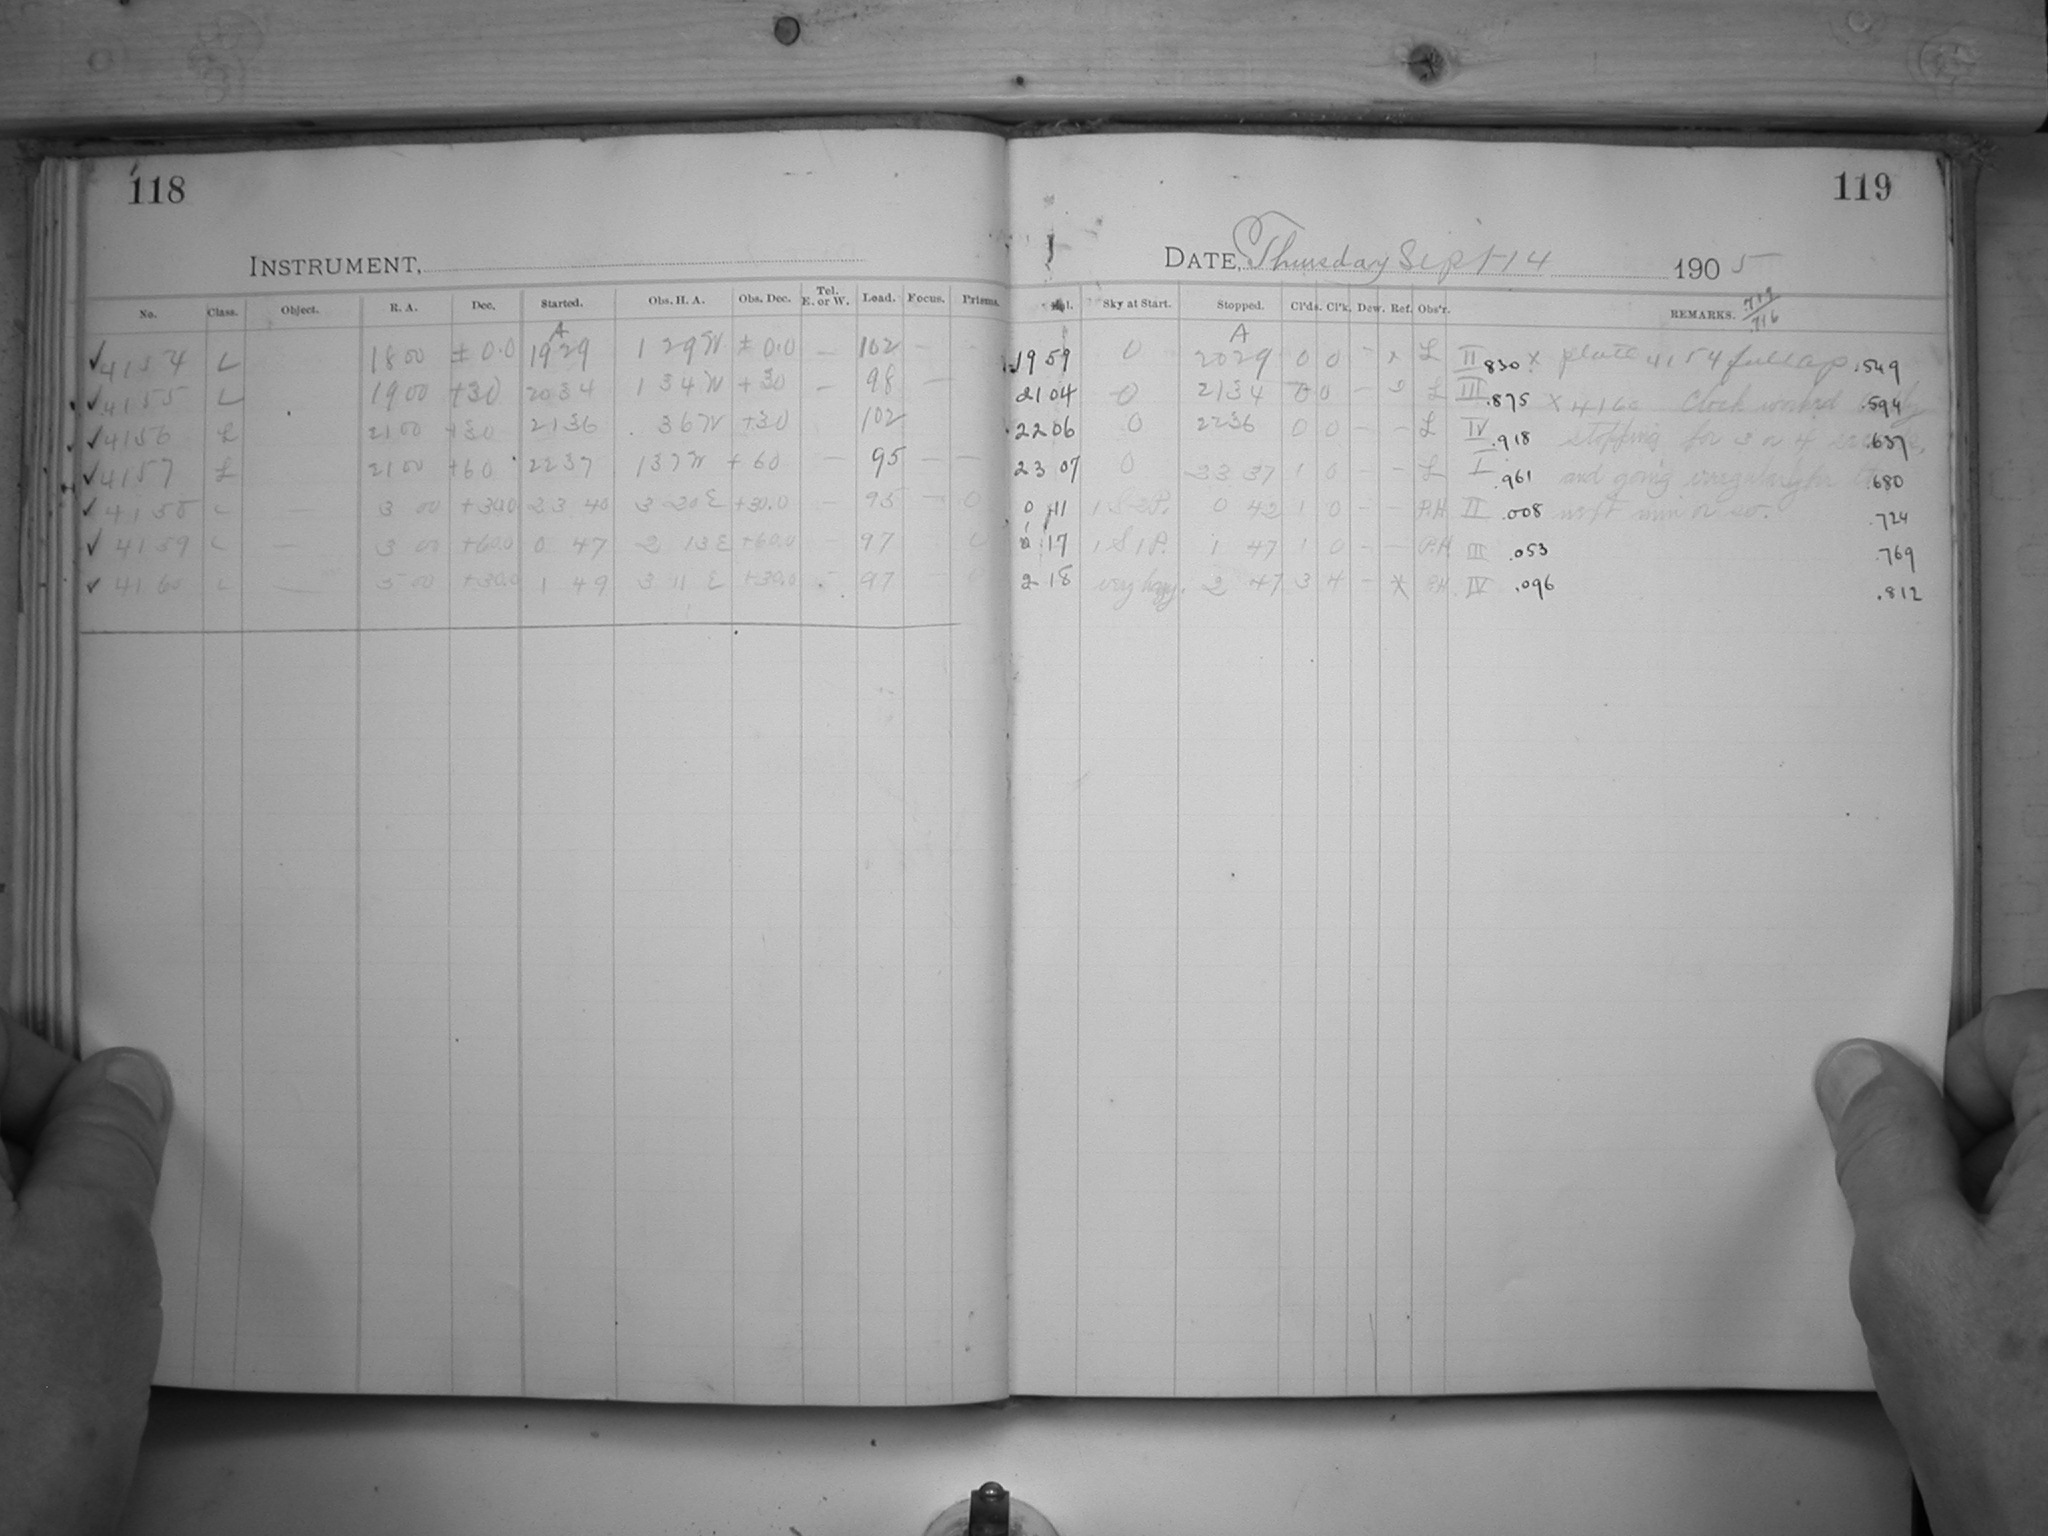 118
119
INSTRUMENT,
DATE, Thursday Sept 14 1905
No. Class. Object. R. A. Dec. Started. Obs. H. A. Obs. Dec. Tel. E. or W. Load. Focus. Prisms. Sky at Start. Stopped. Cl'ds. Cl'k. Dew. Ref. Obs'r. REMARKS. .719/716
A A
✓ 4154 L 18 00 ± 0.0 19 29 1 29 W ± 0.0 — 102 — — 19 59 0 20 29 0 0 - x L II .830 x plate 4154 full ap .549
✓ 4155 L 19 00 +30 20 34 1 34 W +30 — 98 — 21 04 0 21 34 0 0 - L III .875 x 4160 Clock worked .594
✓ 4156 L 21 00 +30 21 36 36 W +30 102 22 06 0 22 36 0 0 - - L IV .918 stopping for 3 or 4 .637
✓ 4157 L 21 00 +60 22 37 1 37 W +60 — 95 — — 23 07 0 23 37 1 0 - - L I .961 and going irregularly for .680
✓ 4158 L — 3 00 +30.0 23 40 3 20 E +30.0 — 95 — 0 0 11 1 S 2 P. 0 42 1 0 - - P.H. II .008 next min or so. .724
✓ 4159 L — 3 00 +60.0 0 47 2 13 E +60.0 — 97 0 17 1 S 1 P. 1 47 1 0 - - P.H. III .053 .769
✓ 4160 L — 5 00 +30.0 1 49 3 11 E +30.0 — 97 2 18 very hazy. 2 47 3 4 - x P.H. IV .096 .812